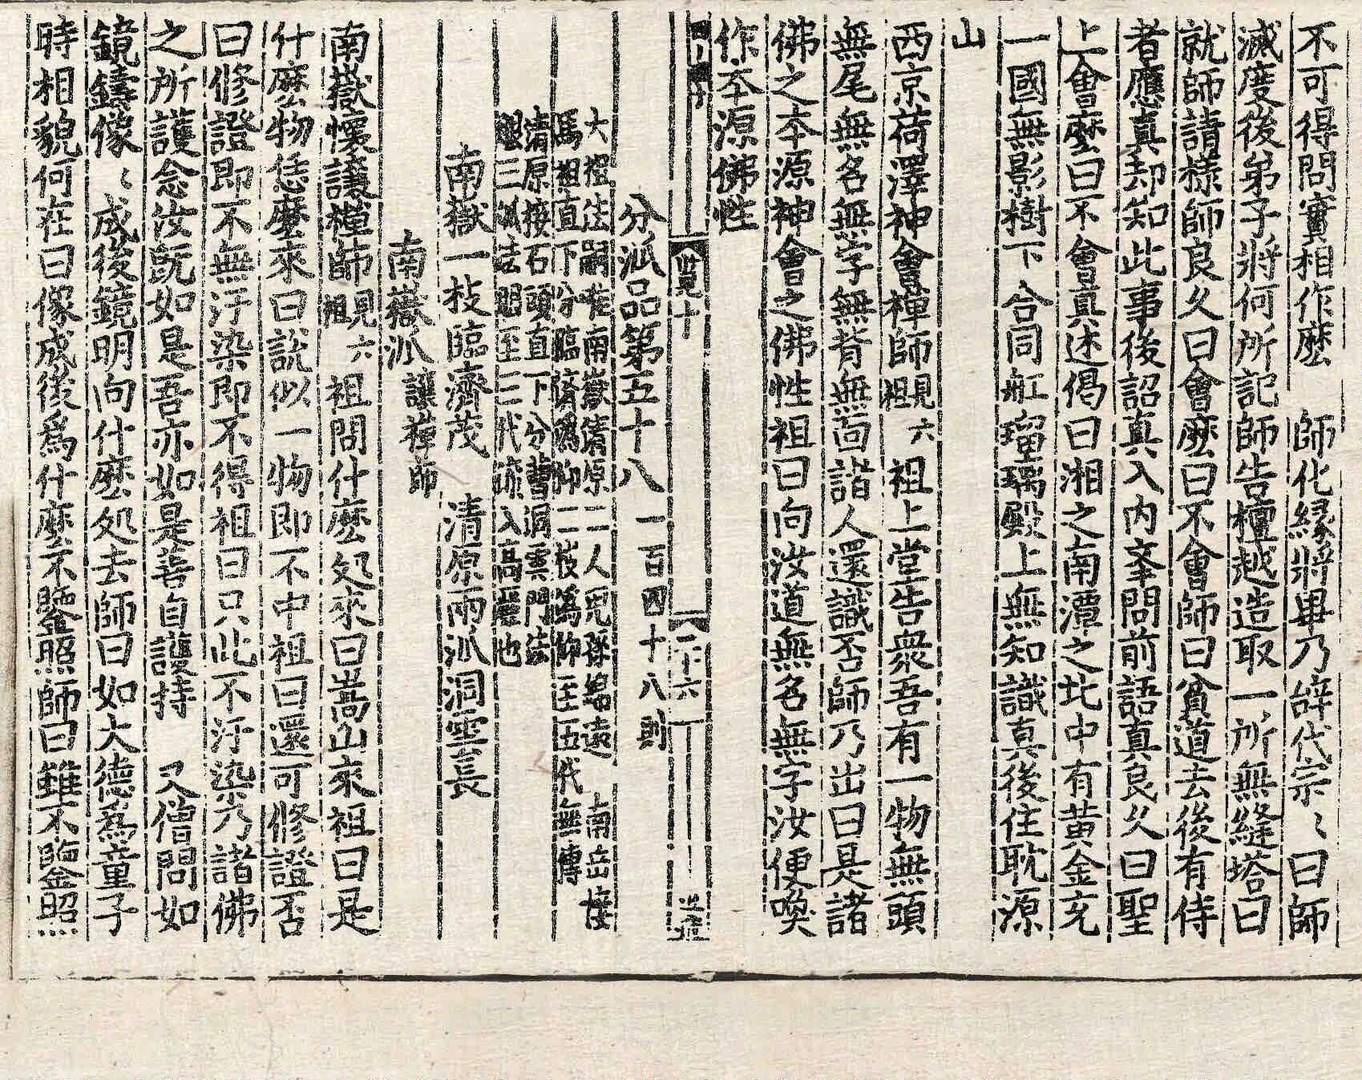 不可得問實相作麽　師化緣將畢乃辞代宗〻曰師
滅度後弟子將何所記師告檀越造取一所無縫塔曰
就師請樣師良久曰會麽曰不會師曰貧道去後有侍
者應真却知此事後詔真入內奉問前語真良久曰聖
上會麽曰不會真述偈曰湘之南潭之北中有黄金充
一國無影樹下合同舡瑠璃殿上無知識真後住耽源
山
西京荷澤神會禪師見六祖祖上堂告衆吾有一物無頭
無尾無名無字無背無面諸人還識否師乃出曰是諸
佛之本源神會之佛性祖曰向汝道無名無字汝便喚
作本源佛性
二十六
分派品第五十八　一百四十八則
大祖法嗣唯南嶽清原二人兒孫綿遠　南岳接
馬祖直下分臨濟潙仰二枝潙仰至五代無傳
清原接石頭直下分曹洞雲門法
眼三派法眼至三代䟽入高麗也
南嶽一枝臨濟茂　清原兩派洞雲長
南嶽派　讓禪師
南嶽懷讓禪師見六祖祖問什麽処來曰嵩山來祖曰是
什麽物恁麽來曰說似一物即不中祖曰還可修證否
曰修證即不無汙染即不得祖曰只此不汙染乃諸佛
之所護念汝旣如是吾亦如是善自護持　又僧問如
鏡鑄像〻成後鏡明向什麽処去師曰如大德爲童子
時相貌何在曰像成後爲什麽不鑒照師曰雖不鑒照